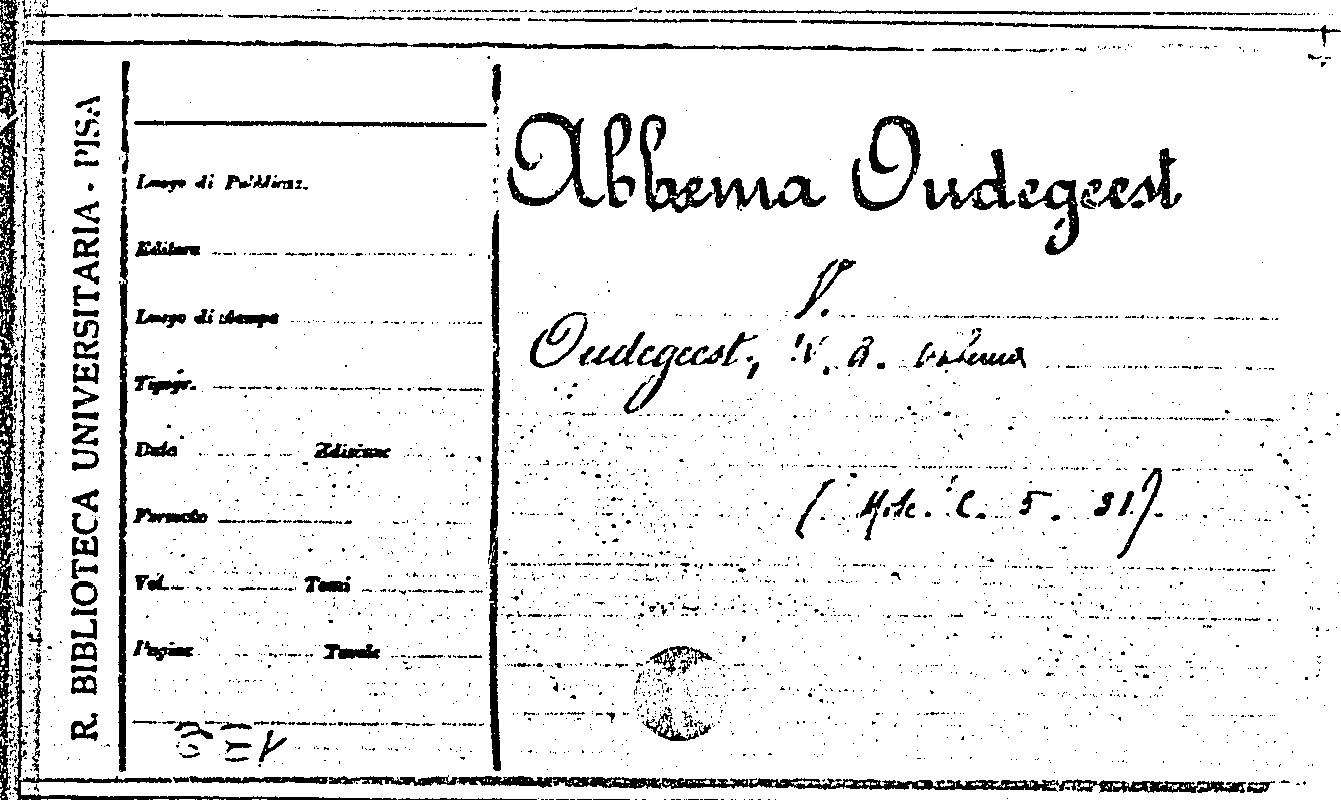 R. BIBLIOTECA UNIVERSITARIA - PISA
Luogo di Pubblicaz.
Editore
Luogo di stampa
Tipogr.
Data Edizione
Formato
Vol. Tomi
Pagine Tavole
Abbema Oudegeest
V.
Oudegeest, W. A. Abbema
( Misc. C. 5. 31).